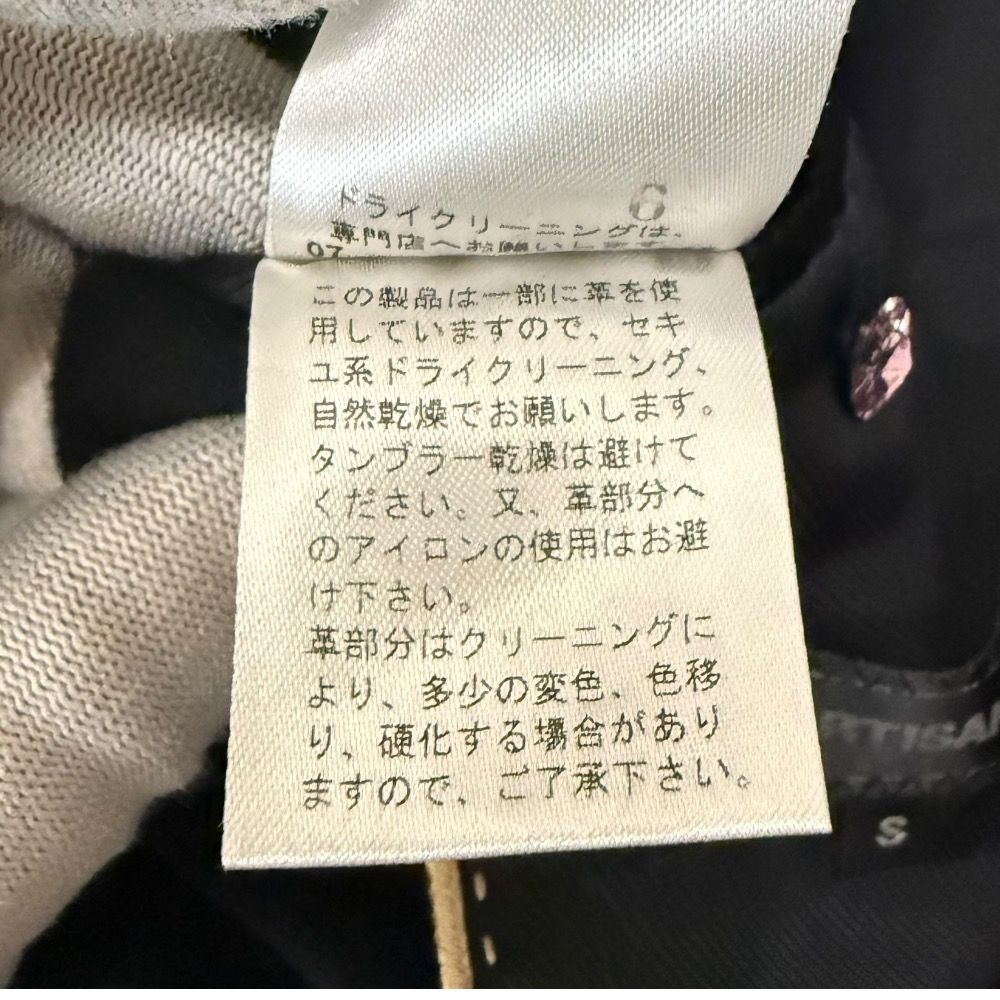 6
ドライクリーニングは、
専門店へお願いします
07
この製品は一部に革を使
用していますので、セキ
ユ系ドライクリーニング、
自然乾燥でお願いします。
タンブラー乾燥は避けて
ください。又、革部分へ
のアイロンの使用はお避
け下さい。
革部分はクリーニングに
より、多少の変色、色移
り、硬化する場合があり
ますので、ご了承下さい。
S